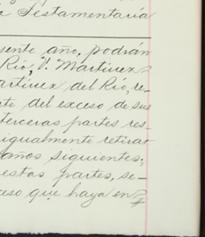 Testamentaria
sente año, podrán
Rio, V. Martinez
artinez del Rio, re-
te del exceso de sus
terceras partes res-
igualmente retirar
años siguientes,
estas partes, se-
aso que haya en